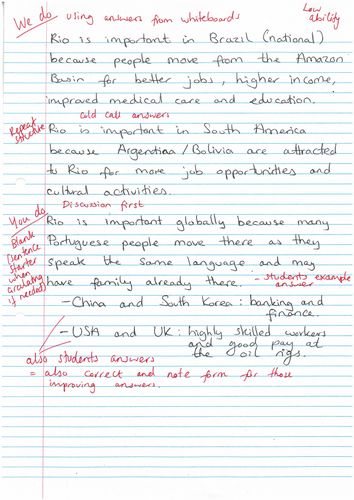 We do using answers from whiteboards
Low ability
Rio is important in Brazil (national)
because people move from the Amazon
Basin for better jobs, higher income,
improved medical care and education.
cold call answers
Repeat structure
Rio is important in South America
because Argentina/Bolivia are attracted
to Rio for more job opportunities and
cultural activities.
You do
Discussion first
Blank sentence starter when circulating if needed
Rio is important globally because many
Portuguese people move there as they
speak the same language and may
have family already there. - students example answer
- China and South Korea: banking and
finance.
- USA and UK: highly skilled workers
and good pay at
the oil rigs.
also students answers
= also correct and note form for those
improving answers.